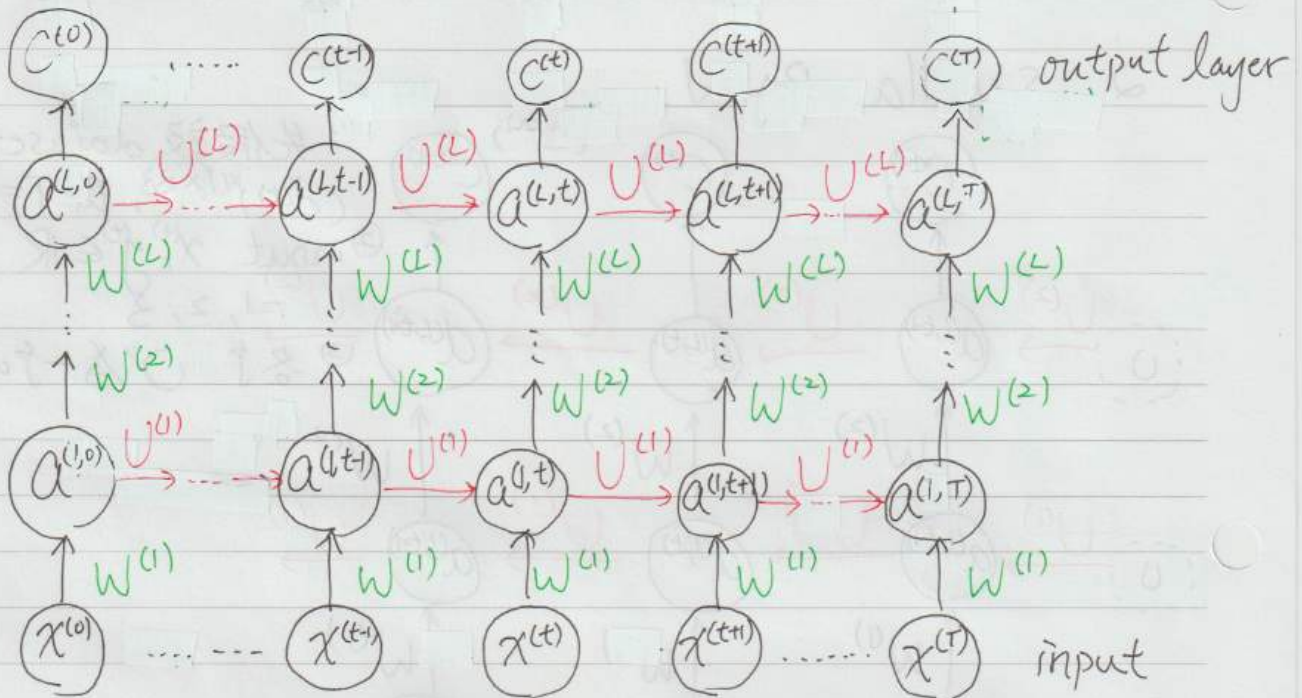 C^(0) ...... C^(t-1) C^(t) C^(t+1) C^(T) output layer
U^(L) U^(L) U^(L) U^(L)
a^(L,0) a^(L,t-1) a^(L,t) a^(L,t+1) a^(L,T)
W^(L) W^(L) W^(L) W^(L) W^(L)
W^(2) W^(2) W^(2) W^(2) W^(2)
U^(1) U^(1) U^(1) U^(1)
a^(1,0) a^(1,t-1) a^(1,t) a^(1,t+1) a^(1,T)
W^(1) W^(1) W^(1) W^(1) W^(1)
x^(0) ...... x^(t-1) x^(t) x^(t+1) ...... x^(T) input